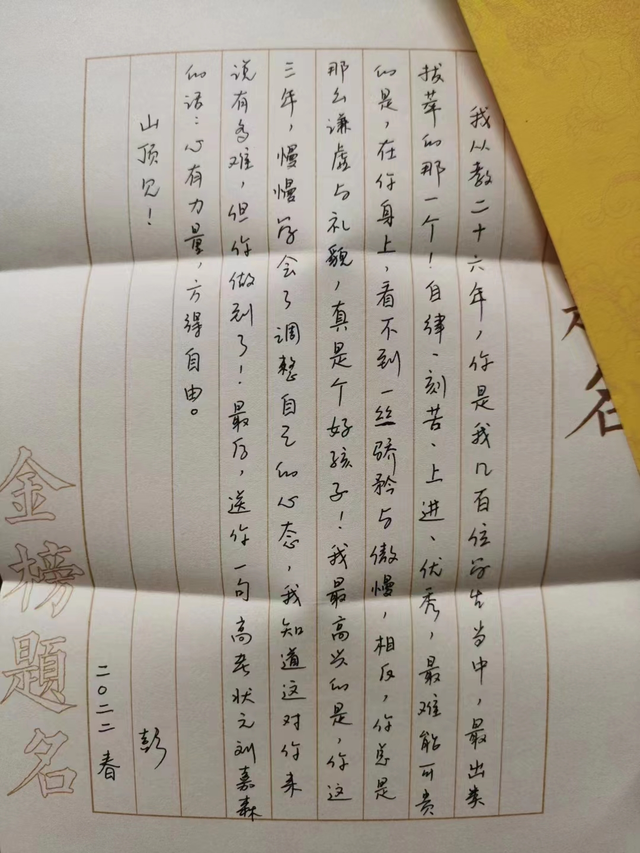 我从教二十六年，你是我几百位学生当中，最出类
拔萃的那一个！自律、刻苦、上进、优秀，最难能可贵
的是，在你身上，看不到一丝骄矜与傲慢，相反，你总是
那么谦虚与礼貌，真是个好孩子！我最高兴的是，你这
三年，慢慢学会了调整自己的心态，我知道这对你来
说有多难，但你做到了！最后，送你一句高考状元刘嘉森
的话：心有力量，方得自由。
山顶见！
彭
二〇二二春
金榜题名
名